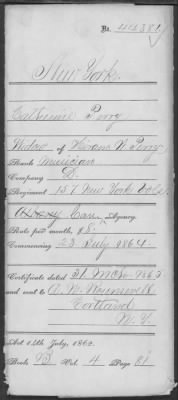 No. 44381
New York.
Catherine Perry
Widow of Hiram N. Perry
Rank Musician
Company D.
Regiment 157 New York Vols.
Albany Can Agency.
Rate per month, $8.
Commencing 23 July 1864.
Certificate dated 31. Mch. 1865
and sent to
Cortland
N.Y.
Act 14th July, 1862.
Book B Vol. 4 Page 61